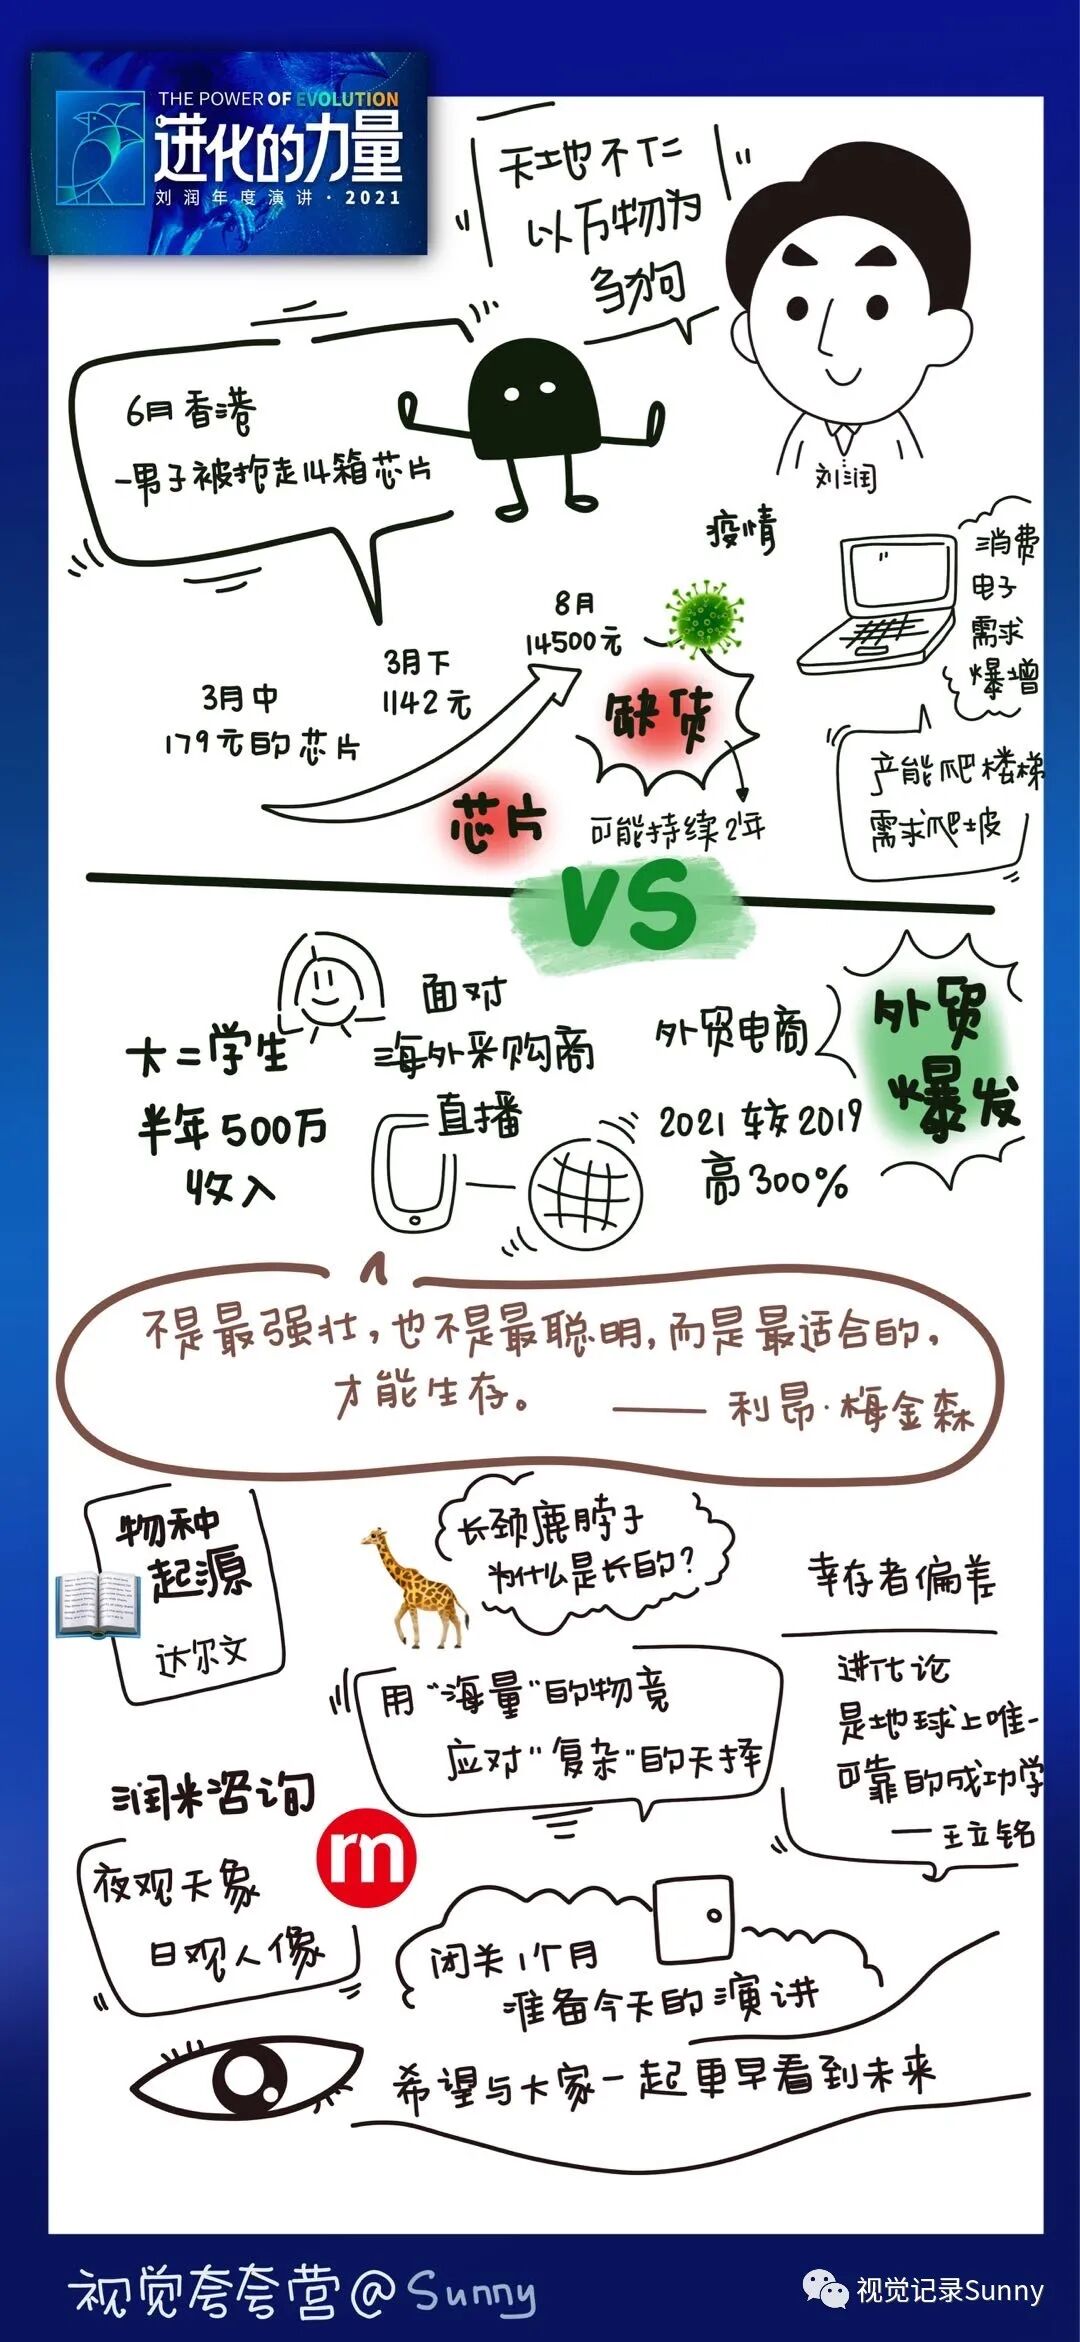 THE POWER OF EVOLUTION
进化的力量
刘润年度演讲·2021
天地不仁
以万物为
刍狗
刘润
6月香港
一男子被抢走14箱芯片
疫情
消费
电子
需求
爆增
8月
14500元
3月下
1142元
3月中
179元的芯片
缺货
芯片
可能持续2年
产能爬楼梯
需求爬坡
VS
大二学生
半年500万
收入
面对
海外采购商
直播
外贸电商
2021较2019
高300%
外贸
爆发
不是最强壮,也不是最聪明,而是最适合的,
才能生存。 ——利昂·梅金森
物种
起源
达尔文
长颈鹿脖子
为什么是长的?
幸存者偏差
用“海量”的物竞
应对“复杂”的天择
进化论
是地球上唯一
可靠的成功学
—王立铭
润米咨询
rm
夜观天象
日观人像
闭关1个月
准备今天的演讲
希望与大家一起更早看到未来
视觉夸夸营@Sunny
视觉记录Sunny